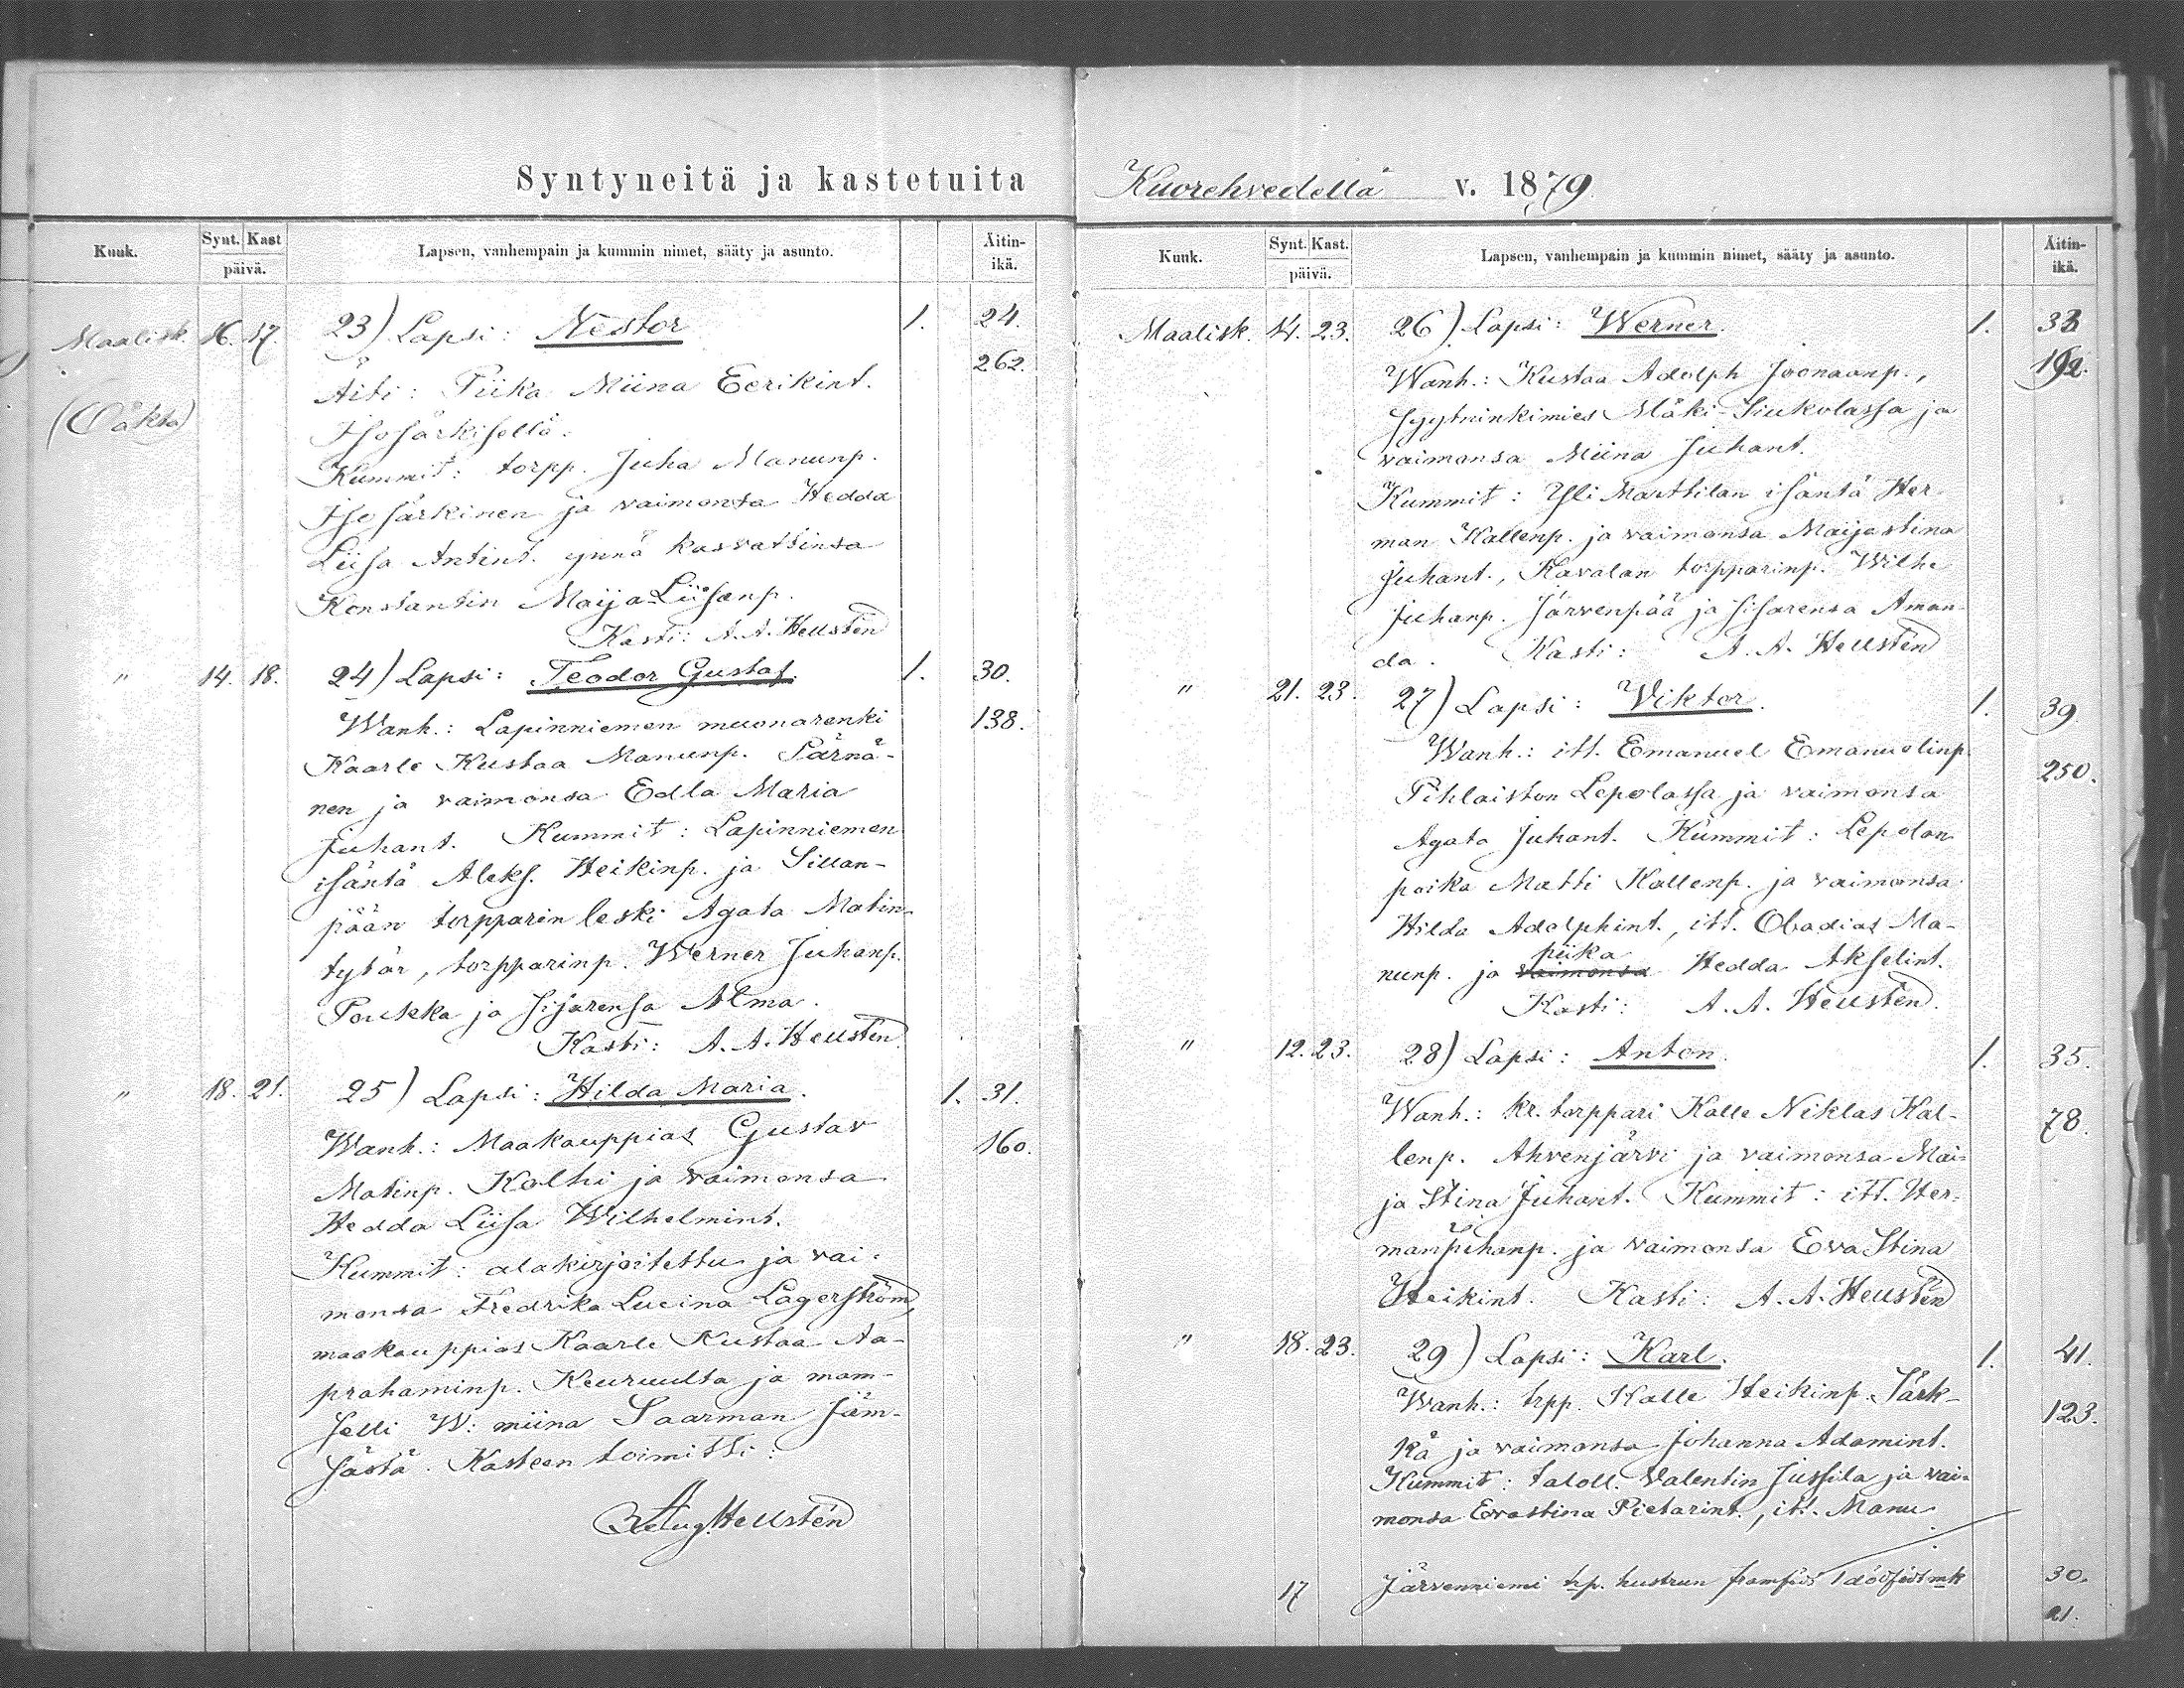 Syntyneitä ja kastetuita
Kuuk. Synt. Kast päivä. Lapsen, vanhempain ja kummin nimet, sääty ja asunto. Äitin-ikä.
Maalisk. 16. 17. 23) Lapsi: Nestor 1. 24.
Äiti: Piika Miina Eerikint. 262.
(Oäkta) Isosärkisellä.
Kummit: torpp. Juha Manunp.
Isosärkinen ja vaimonsa Hedda
Liisa Antint. ynnä kasvattinsa
Konstantin Maija-Liisanp.
Kasti: A. A. Hellstén
" 14. 18. 24) Lapsi: Teodor Gustaf. 1. 30.
Wanh.: Lapinniemen muonarenki 138.
Kaarle Kustaa Manunp. Pärnä-
nen ja vaimonsa Edla Maria
Juhant. Kummit: Lapinniemen
isäntä Aleks. Heikinp. ja Sillan-
pään torpparin leski Agata Matin-
tytär, torpparinp. Werner Juhanp.
Poukka ja sisarensa Alma.
Kasti: A. A. Hellstén.
" 18. 21. 25) Lapsi: Hilda Maria. 1. 31.
Wanh.: Maakauppias Gustav 160.
Matinp. Kolhi ja vaimonsa
Hedda Liisa Wilhelmint.
Kummit: alakirjoitettu ja vai-
monsa Fredrika Lucina Lagerström,
maakauppias Kaarle Kustaa Aa-
prahaminp. Keuruulta ja mam-
selli W: miina Saarman Jäm-
sästä. Kasteen toimitti:
Aug. Hellstén
Kuorehvedellä v. 1879.
Kuuk. Synt. Kast. päivä. Lapsen, vanhempain ja kummin nimet, sääty ja asunto. Äitin-ikä.
Maalisk. 14. 23. 26) Lapsi: Werner. 1. 33
Wanh.: Kustaa Adolph Joonaanp., 192.
syytninkimies Mäki-Siukolassa ja
vaimonsa Miina Juhant.
Kummit: Yli Marttilan isäntä Her-
man Kallenp. ja vaimonsa Maijastina
Juhant., Kavalan torpparinp. Wilhe
Juhanp. Järvenpää ja sisarensa Aman-
da. Kasti: A. A. Hellstén
" 21. 23. 27) Lapsi: Viktor. 1. 39
Wanh.: itl. Emanuel Emanuelinp. 250.
Pihlaiston Lepolassa ja vaimonsa
Agata Juhant. Kummit: Lepolan
poika Matti Kallenp. ja vaimonsa
Hilda Adolphint., itl. Obadias Ma-
nunp. ja vaimonsa piika Hedda Akselint.
Kasti: A. A. Hellstén.
" 12. 23. 28) Lapsi: Anton. 1. 35.
Wanh.: kr. torppari Kalle Niklas Kal- 78.
lenp. Ahvenjärvi ja vaimonsa Mai-
ja Stina Juhant. Kummit: itl. Her-
man Juhanp. ja vaimonsa Eva Stina
Heikint. Kasti: A. A. Hellstén
" 18. 23. 29) Lapsi: Karl. 1. 41.
Wanh.: trpp. Kalle Heikinp. Särk- 123.
kä ja vaimonsa Johanna Adamint.
Kummit: taloll. Valentin Jussila ja vai-
monsa Evastina Pietarint., itl. Manu
17 Järvenniemi trp. hustrun framfött 1 dödfödt mk 30.
21.